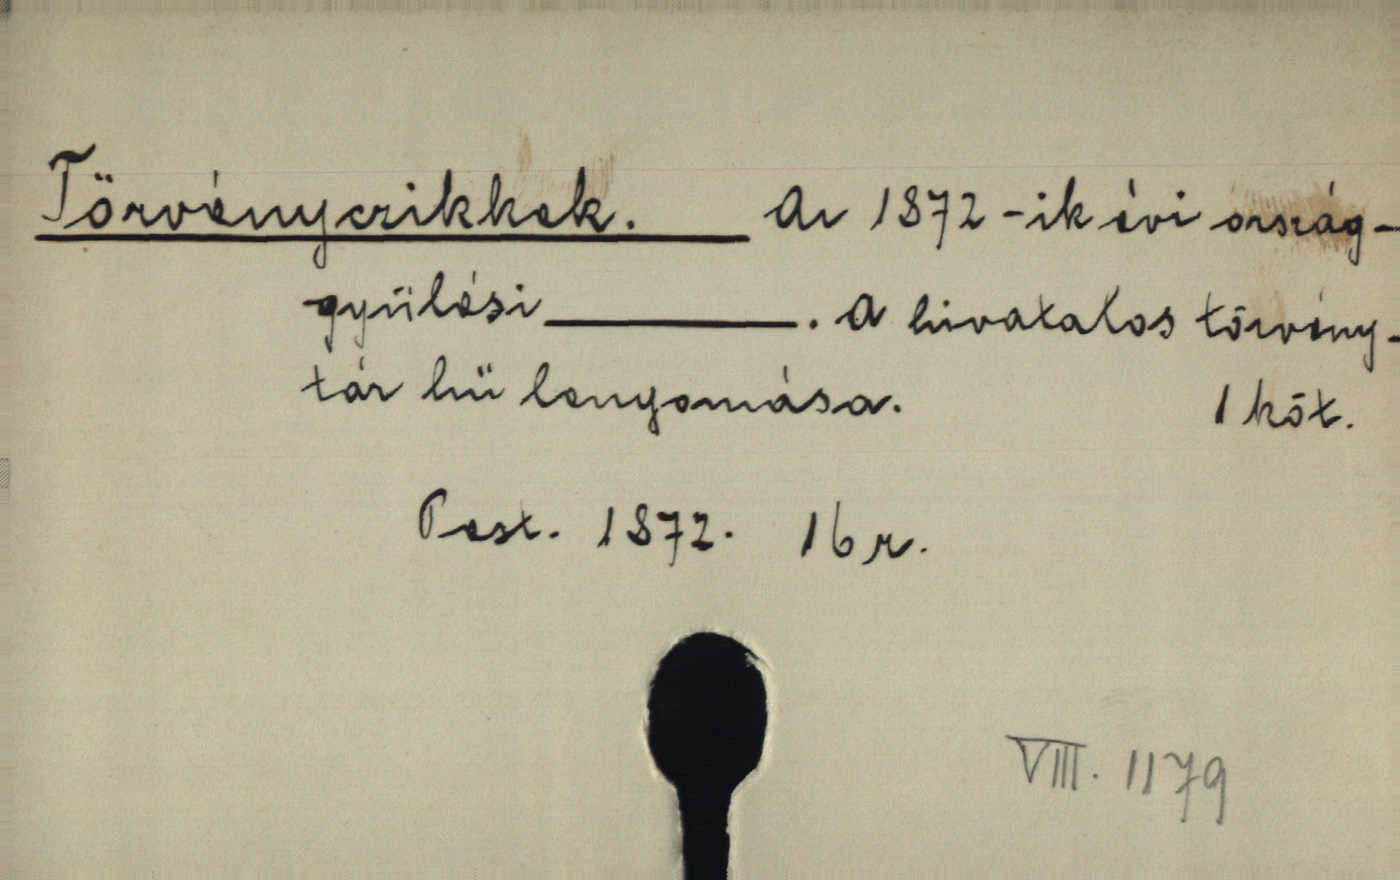 Törvényczikkek. Az 1872-ik évi ország-
gyülési ________. A hivatalos törvény-
tár hü lenyomása. 1 köt.
Pest. 1872. 16 r.
VIII. 1179